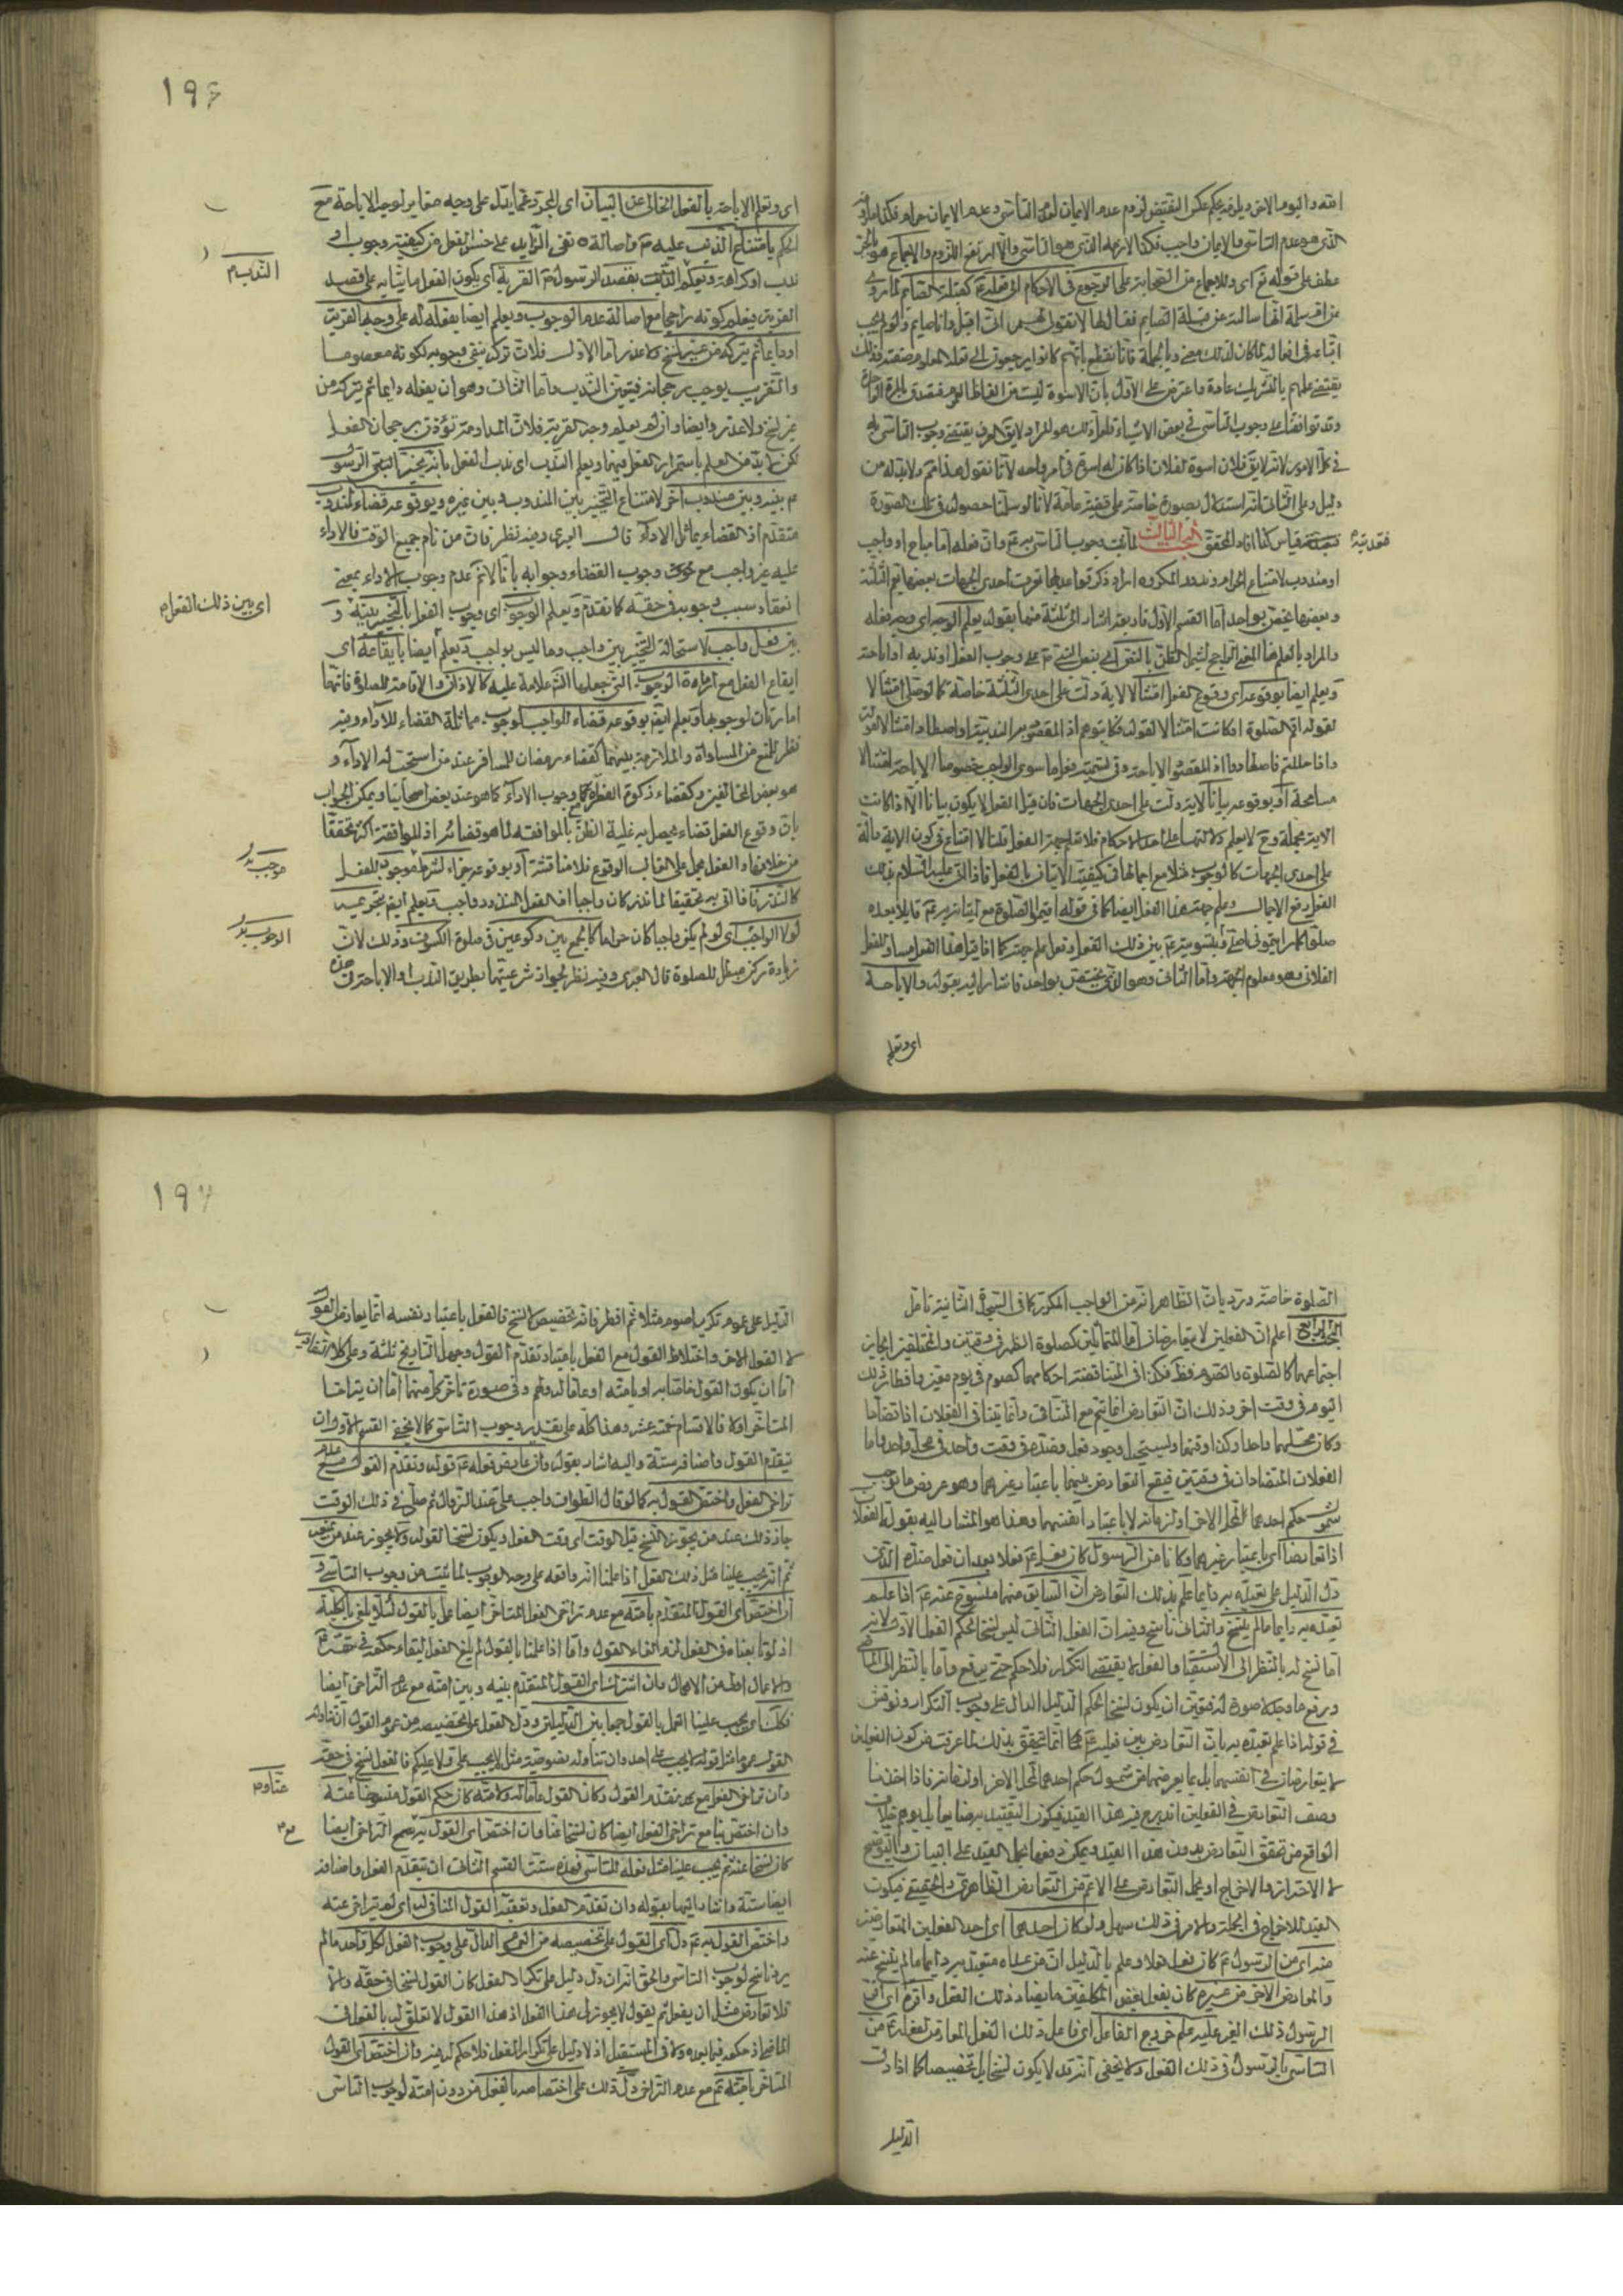 الله واليوم الاخر ويلزم بحكم عكس النقيض لزوم عدم الايمان لعدم التأسي وعدم الايمان حرام فكذا ملزومه
الذي هو عدم التأسي والايمان واجب فكذا لازمه الذي هو التأسي والا ارتفع اللزوم والاجماع هو بالجر
عطف على قوله تع اي وللاجماع من الصحابة على الرجوع في الاحكام الى فعله ع كقبلة الصائم لما روي
عن ام سلمة انها سألته عن قبلة الصائم فقال لها لم لا تقولي لهم اني اقبل وانا صايم ولو لم يجب
اتباعه في افعاله لما كان لذلك معنى وبالجملة فانا نقطع بانهم كانوا يرجعون الى فعله المعلوم صفته وذلك
يقتضي علمهم بالتشريك عادة واعترض على الاول بان الاسوة ليست من الفاظ العموم فيصدق بالمرة الواحدة
وقد توافقنا على وجوب التأسي في بعض الاشياء فلعل ذلك هو المراد لا يق العرف يقتضي وجوب التأسي به
في كل الامور لانه لا يق فلان اسوة لفلان اذا كان له اسوة في امر واحد لانا نقول هذا مم ولا بد له من
دليل وعلى الثاني انه استدلال بصورة خاصة على قضية عامة لانا لو سلمنا حصوله في تلك الصورة
فقياس كذا افاد المحقق البحث الثالث لما ثبت وجوب التأسي به ع وان فعله اما مباح او واجب
فتعديته
او مندوب لامتناع الحرام وندور المكروه اراد ذكر قواعد بها تعرف احدى الجهات بعضها تعم الثلثة
وبعضها يختص بواحد اما القسم الاول فاربعة اشار الى ثلثة منها بقوله يعلم الوجه اي وجه فعله
والمراد بالعلم هنا المعنى الراجح ليشمل الظن بالنص اي بنص النبي ص على وجوب الفعل او ندبه او اباحته
ويعلم ايضا بوقوعه اي وقوع الفعل امتثالا لاية دلت على احدى الثلثة خاصة كما لو صلى امتثالا
لقوله اقم الصلوة او كاتب امتثالا لقوله فكاتبوهم اذ المقصود الندبية او اصطاد امتثالا لقوله
واذا حللتم فاصطادوا اذ المقصود الاباحة وفي تسمية فعل ما سوى الواجب خصوصا الاباحة امتثالا
مسامحة او بوقوعه بيانا لاية دلت على احدى الجهات فان قيل الفعل لا يكون بيانا الا اذا كانت
الاية مجملة وح لا يعلم دلالتها على احد الاحكام فلا تعلم جهة الفعل قلنا لا امتناع في كون الاية دالة
على احدى الجهات كالوجوب مثلا مع اجمالها في كيفية الاتيان بالفعل فاذا اتى عليه السلام بذلك
الفعل رفع الاجمال وعلم جهة هذا الفعل ايضا كما في قوله اقيموا الصلوة مع اتيانه به ع قائلا بعده
صلوا كما رايتموني اصلي او بتسويته ع بين ذلك الفعل وفعل علم جهته كما اذا قيل هذا الفعل مساو للفعل
الفلاني وهو معلوم الجهة واما الثاني وهو الذي يختص بواحد فاشار اليه بقوله والاباحة
اي وتعلم
١٩٦
اي وتعلم الاباحة بالفعل الخالي عن البيان اي المجرد عما يدل على وجه مغاير لوجه الاباحة مع
الحكم بامتناع الذنب عليه ع واصالة نفي الزايد على حسن الفعل من كيفية وجوب او
ندب او كراهة ويعلم الندب بقصد الرسول ع القربة اي بكون الفعل مما يشابه على قصد
الندب
القربة فيعلم كونه راجحا مع اصالة عدم الوجوب ويعلم ايضا بفعله له على وجه القربة
او دايما ثم يتركه من غير نسخ ولا عذر اما الاول فلان تركه ينفي وجوبه لكونه معصوما
والتقرب يوجب رجحانه فيتعين الندب واما الثاني وهو ان يفعله دايما ثم يتركه من
غير نسخ ولا عذر وايضا وان لم يعلم وجه القربة فلان المداومة تؤذن برجحان الفعل
لكن لا بد من العلم باستمرار الفعل فيهما ويعلم الندب اي ندب الفعل بانه يخير النبي الرسول
ع بينه وبين مندوب آخر لامتناع التخيير بين المندوب وبين غيره وبوقوعه قضاء لمندوب
متقدم اذ القضاء يماثل الاداء قال العبري وفيه نظر فان من نام جميع الوقت فالاداء
عليه غير واجب مع وجوب القضاء وجوابه بانا لانم عدم وجوب الاداء بمعنى
انعقاد سبب وجوبه في حقه كما تقدم ويعلم الوجوب اي وجوب الفعل بالتخيير بينه و
اي بين ذلك الفعل
بين فعل واجب لاستحالة التخيير بين واجب وما ليس بواجب ويعلم ايضا بايقاعه اي
ايقاع الفعل مع امارة الوجوب التي جعلها الشرع علامة عليه كالاذان والاقامة للصلوة فانهما
امارتان لوجوبها ويعلم ايض بوقوعه قضاء لواجب لوجوب مماثلة القضاء للاداء وفيه
نظر لمنع من المساواة والملازمة بينهما كقضاء رمضان للمسافر عند من استحب له الاداء و
هو بعض المخالفين وكقضاء زكوة الفطرة مع وجوب الاداء كما هو عند بعض اصحابنا ويمكن الجواب
بان وقوع الفعل قضاء يحصل به غلبة الظن بالموافقة لما هو قضائه اذ الموافقة اكثر تحققا
من خلافها والفعل يحمل على الغالب الوقوع فلا مناقشة او بوقوعه جزاء لشرط موجب للفعل
موجب
كالنذر فاذا اتى به تحقيقا لما نذر كان واجبا اذ الفعل المنذور واجب ويعلم ايض بتحريمه
لولا الواجب اي لو لم يكن واجبا كان حراما كالجمع بين ركوعين في صلوة الكسوف وذلك لان
الوجوب
زيادة ركن مبطل للصلوة قال العبري وفيه نظر لجواز شرعيتهما بطريق الندب او الاباحة في هذه
الصلوة خاصة ورد بان الظاهر انه من الواجب المكرر كما في السجدة الثانية تأمل
البحث الرابع اعلم ان الفعلين لا يتعارضان اما المتماثلين كصلوة الظهر في وقتين والمختلفين الجايز
اجتماعهما كالصلوة والصوم فظ فكذا في المتناقضة احكامهما كصوم في يوم معين وافطار ذلك
اليوم في وقت اخر وذلك ان التعارض انما يتم مع التنافي وانما يتنافى الفعلان اذا تضادا
وكان محلهما واحدا وكذا وقتهما ويستحيل وجود فعل وضده في وقت واحد في محل واحد واما
الفعلان المتضادان في وقتين فيقع التعارض بينهما باعتبار غيرهما وهو عروض ما يوجب
شمول حكم احدهما لمحل الاخر او لزمانه لا باعتبار انفسهما وهذا هو المشار اليه بقوله الفعلان
اذا تعارضا اي باعتبار غيرهما وكانا من الرسول كان يفعل ع فعلا بعد ان فعل ضده الذي
دل الدليل على تعبده به دايما علم بذلك التعارض ان السابق منهما منسوخ عنه ع اذا علم
تعبده به دايما ما لم ينسخ والثاني ناسخ وفيه ان الفعل الثاني ليس نسخا لحكم الفعل الاول لانه
اما نسخ له بالنظر الى الاستقبال والفعل لا يقتضي التكرار فلا حكم حتى يرفع واما بالنظر الى الماضي
ورفع ما وجد لا صورة له فتعين ان يكون نسخا لحكم الدليل الدال على وجوب التكرار ونوقش
في قوله اذا علم تعبده به بان التعارض بين فعليه ع انما يتحقق بذلك لما عرفت من كون الفعلين
لا يتعارضان في انفسهما بل بما يعرضهما من شمول حكم احدهما لمحل الاخر او لزمانه فاذا اخذنا
وصف التعارض في الفعلين اندرج فيه هذا القيد فيكون التقييد به ضايعا بل يوهم خلاف
الواقع من تحقق التعارض بدون هذا القيد ويمكن دفعها بحمل القيد على البيان والتوضيح
لا الاحتراز والاخراج او يحمل التعارض على الاعم من التعارض الظاهري والحقيقي فيكون
القيد للاخراج في الجملة والامر في ذلك سهل ولو كان احدهما اي احد الفعلين المتعارضين
منه اي من الرسول ع كان يفعل فعلا وعلم بالدليل ان من عداه متعبد به دايما ما لم ينسخ عنه
والمعارض الاخر من غيره كان يفعل بعض المكلفين ما يضاد ذلك الفعل واقره اي اقر
الرسول ذلك الغير عليه علم خروج الفاعل اي فاعل ذلك الفعل المعارض لفعله ع من
التأسي بالرسول في ذلك الفعل ولا يخفى انه قد لا يكون نسخا بل تخصيصا كما اذا دل
الدليل
١٩٧
الدليل على عموم تكرير صوم مثلا ثم افطر فانه تخصيص لا نسخ فالفعل باعتبار نفسه انما يعارض القول
لا الفعل الاخر واختلاط القول مع الفعل باعتبار تقدم القول وجهل التاريخ ثلثة وعلى كل
اما ان يكون القول خاصا به او بامته او عاما له ولهم وفي صورة تأخر كل منهما اما ان يتراخا
المتأخر او لا فالاقسام خمسة عشر وهذا كله على تقدير وجوب التأسي كما لا يخفى القسم الاول ان
يتقدم القول واصنافه ستة واليه اشار بقوله وان عارض فعله ع قوله وتقدم القول مع
تراخي الفعل واختص القول به كما لو قال الطواف واجب علي عند الزوال ثم صلى في ذلك الوقت
جاز ذلك عند من يجوز النسخ قبل الوقت اي وقت الفعل ويكون نسخا لقوله ولا يجوز عند من يمنعه
ثم انه يجب علينا مثل ذلك الفعل اذا علمنا انه واقعه على وجه الوجوب لما يثبت من وجوب التأسي و
ان اختص اي القول المتقدم بامته مع عدم تراخي الفعل المتأخر ايضا عمل بالقول لئلا يلغى بالكلية
اذ لو تابعناه في الفعل لزم الغاء القول واما اذا علمنا بالقول لم يلغ الفعل لبقاء حكمه في حقه ع
والاعمال اولى من الاهمال وان اشترك اي القول المتقدم بينه وبين امته مع عدم التراخي ايضا
فكذلك اي يجب علينا العمل بالقول جمعا بين الدليلين ودل الفعل على تخصيصه من عموم القول ان تناوله
القول عموما مثل قوله لا يجب على احد وان تناوله بخصوصية مثل لا يجب علي ولا عليكم فالفعل نسخ في حقه
وان تراخى الفعل مع تقدم القول وكان القول عاما له ولامته كان حكم القول منسوخا عنه
عنا وعنه
وان اختص بنا مع تراخي الفعل ايضا كان نسخا عنا وان اختص اي القول به مع التراخي ايضا
كان نسخا عنه ثم يجب علينا مثل فعله للتأسي فهذه ستة القسم الثاني ان يتقدم الفعل واصنافه
ايضا ستة واشار اليها بقوله وان تقدم الفعل وتعقبه القول المنافي له اي لم يتراخى عنه
واختص القول به ع دل اي القول على تخصيصه من العموم الدال على وجوب الفعل لكل واحد ما لم
يرد ناسخ لوجوب التأسي والحق انه ان دل دليل على تكرار الفعل كان القول نسخا في حقه والا
فلا تعارض مثل ان يفعل ثم يقول لا يجوز لي هذا الفعل اذ هذا القول لا تعلق له بالفعل في
الماضي اذ حكمه فيما بعده ولا في المستقبل اذ لا دليل على تكرار الفعل فلا حكم له فيه وان اختص اي القول
المتأخر بامته ع مع عدم التراخي دل ذلك على اختصاصه بالفعل من دون امته لوجوب التأسي